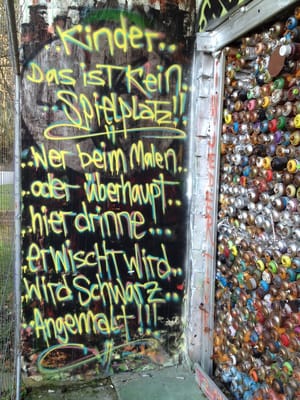 ..Kinder..
Das ist kein
Spielplatz!!
..wer beim Malen..
..oder überhaupt..
..hier drinne...
..erwischt wird..
wird Schwarz
Angemalt!!!